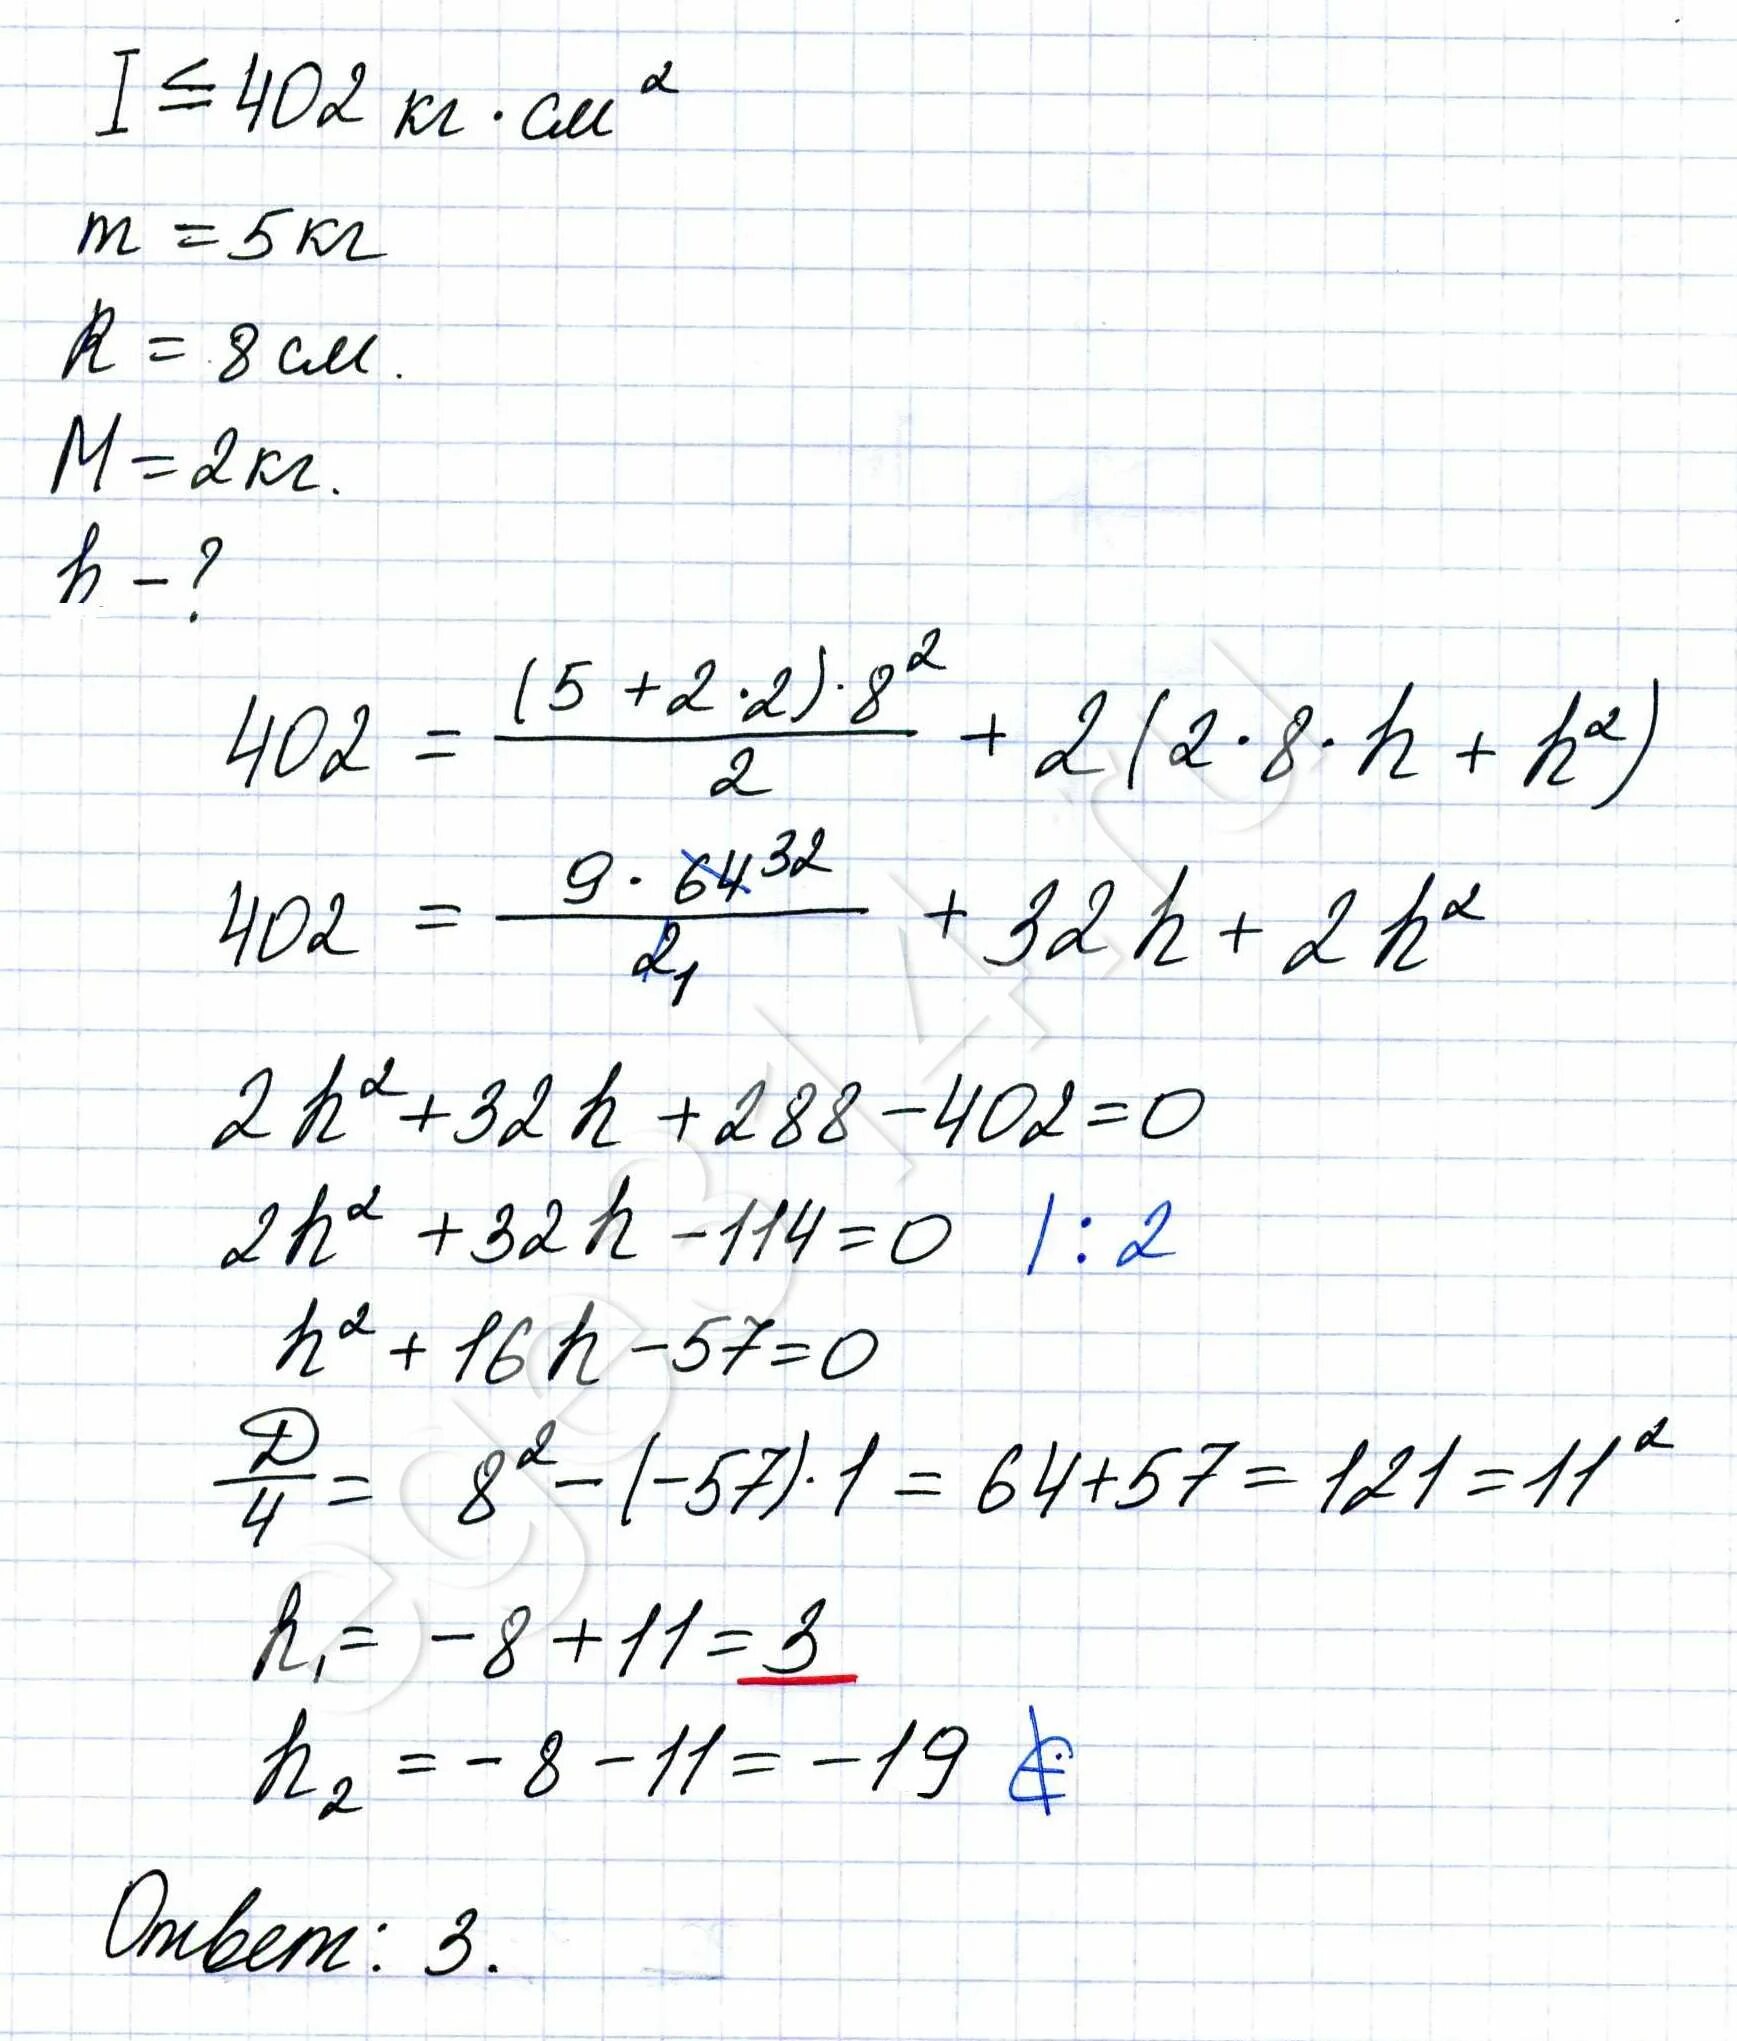 I ≤ 402 кг · см²
m = 5 кг
R = 8 см.
M = 2 кг.
h – ?
402 = (5 + 2 · 2) · 8² / 2 + 2 (2 · 8 · h + h²)
402 = 9 · 64 32 / 2 1 + 32 h + 2 h²
2h² + 32h + 288 – 402 = 0
2h² + 32h – 114 = 0 | : 2
h² + 16h – 57 = 0
D/4 = 8² – (–57) · 1 = 64 + 57 = 121 = 11²
h₁ = – 8 + 11 = 3
h₂ = – 8 – 11 = – 19
Ответ: 3.
ege314.ru